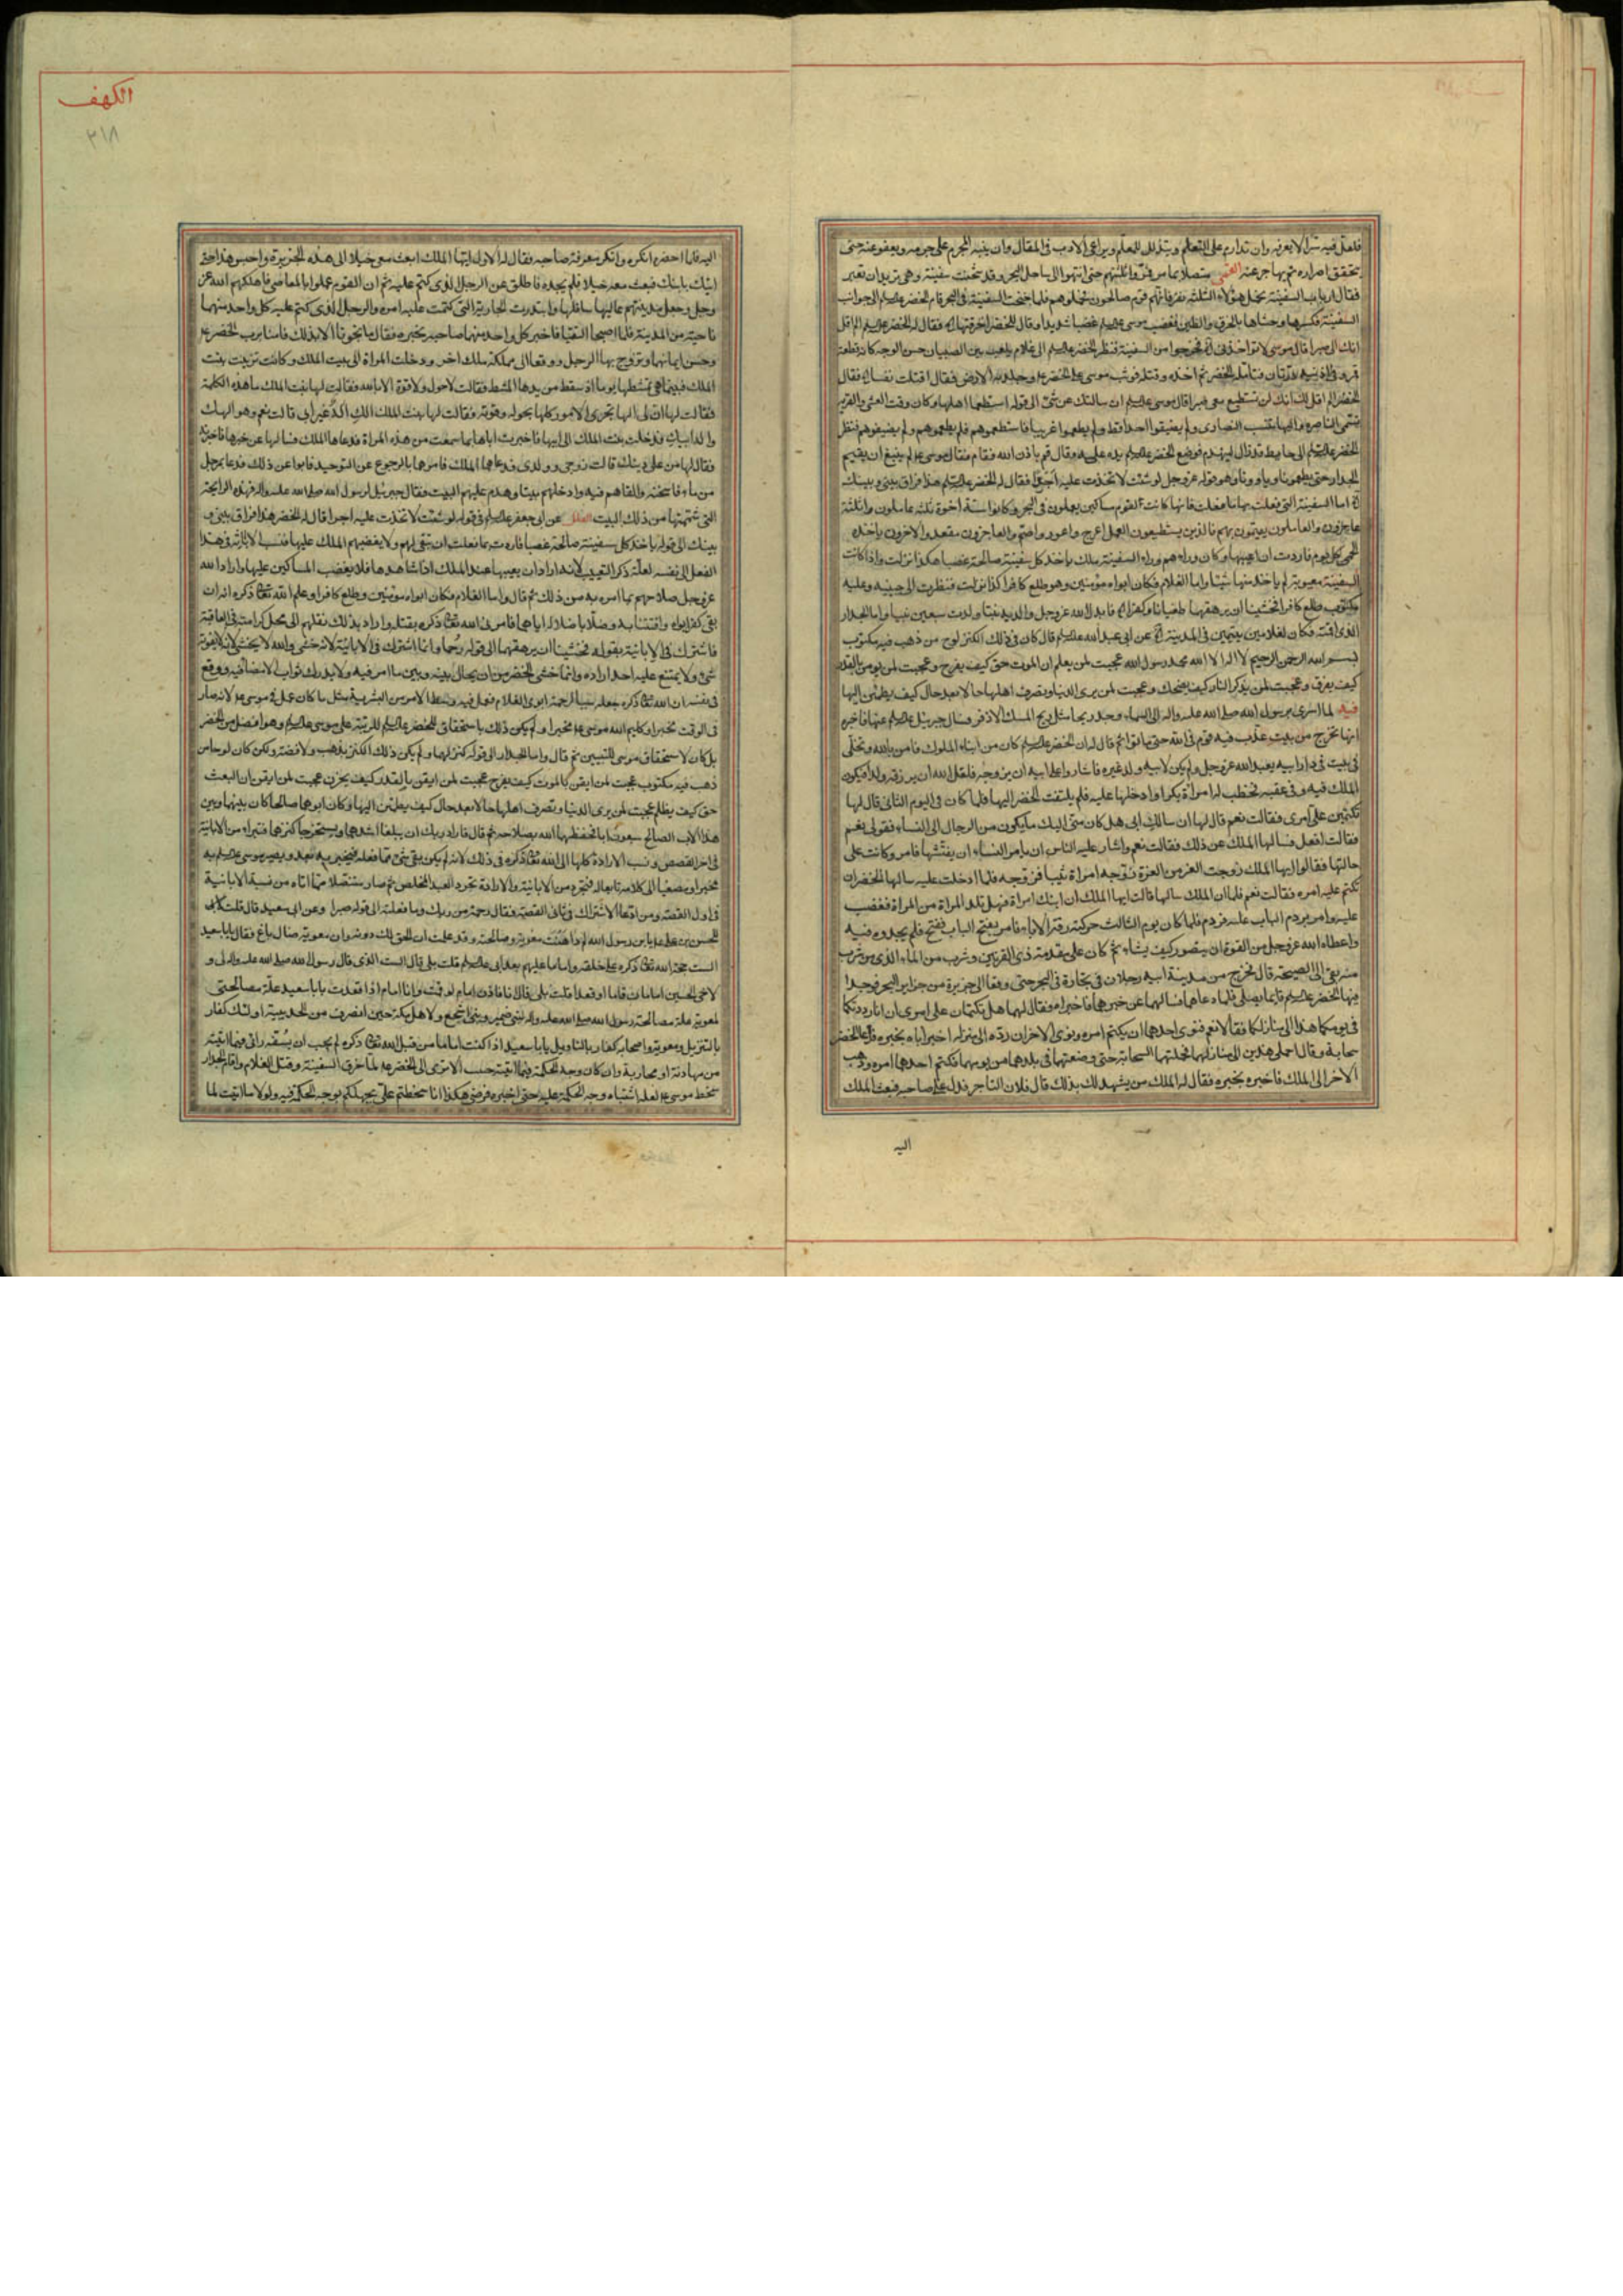 فلعل فيه سرا لا يعرفه وان تداوم على التعلم ويتذلل للمعلم ويراعى الادب فى المقال وان ينبه المجرم على جرمه ويعفو عنه حتى
يتحقق اصراره ثم يهاجر عنه القمى متصلا بما مر
فقال ارباب السفينة نحمل هؤلاء الثلثة نفر فانهم قوم صالحون فحملوهم فلما جنحت السفينة فى البحر قام الخضر الى جوانب
السفينة فكسرها وحشاها بالخرق والطين فغضب موسى غضبا شديدا وقال للخضر اخرقتها فقال له الخضر الم اقل
انك الى صبرا قال موسى لا تؤاخذنى فخرجوا من السفينة فنظر الخضر الى غلام يلعب بين الصبيان حسن الوجه كانه قطعة
قمر وفى اذنيه درتان فتامله الخضر ثم اخذه وقتله فوثب موسى على الخضر وجلد به الارض فقال اقتلت نفسا فقال
الخضر الم اقل لك انك لن تستطيع معى صبرا قال موسى ان سالتك عن شئ الى قوله استطعما اهلها وكان وقت العشى والقرية
تسمى الناصرة واليها ينتسب النصارى ولم يضيفوا احدا قط ولم يطعموا غريبا فاستطعموهم فلم يطعموهم ولم يضيفوهم فنظر
الخضر الى حايط قد زال لينهدم فوضع الخضر يده عليه وقال قم باذن الله فقام فقال موسى لم ينبغ ان يقيم
الجدار حتى يطعمونا وياوونا وهو قوله عز وجل لو شئت لاتخذت عليه اجرا فقال له الخضر هذا فراق بينى وبينك
اما السفينة التى فعلت بها ما فعلت فانها كانت لقوم مساكين يعملون فى البحر
السفينة معيوبة لم ياخذ منها شيئا واما الغلام فكان ابواه مؤمنين وهو طبع كافرا كذا نزلت فنظرت الى جبينه وعليه
مكتوب طبع كافرا فخشينا ان يرهقهما طغيانا وكفرا فابدل الله عز وجل والديه بنتا ولدت سبعين نبيا واما الجدار
الذى اقمته فكان لغلامين يتيمين فى المدينة عن ابى عبد الله قال كان فى ذلك الكنز لوح من ذهب فيه مكتوب
بسم الله الرحمن الرحيم لا اله الا الله محمد رسول الله عجبت لمن يعلم ان الموت حق كيف يفرح وعجبت لمن يومن بالقدر
كيف يفرق وعجبت لمن يذكر النار كيف يضحك وعجبت لمن يرى الدنيا وتصرف اهلها حالا بعد حال كيف يطمئن اليها
وفيه لما اسرى برسول الله صلى الله عليه واله الى السماء وجد ريحا مثل ريح المسك الاذفر فسال جبرئيل عنها فاخبره
انها تخرج من بيت عذب فيه قوم فى الله حتى ماتوا ثم قال له ان الخضر كان من ابناء الملوك فامن بالله وتخلى
فى بيت فى دار ابيه يعبد الله عز وجل ولم يكن لابيه ولد غيره فاشاروا على ابيه ان يزوجه فلعل الله ان يرزقه ولدا فيكون
الملك فيه وفى عقبه فخطب له امراة بكرا وادخلها عليه فلم يلتفت الخضر اليها فلما كان فى اليوم الثانى قال لها
تكتمين على امرى فقالت نعم قال لها ان سالك ابى هل كان منى اليك ما يكون من الرجال الى النساء فقولى نعم
فقالت افعل فسالها الملك عن ذلك فقالت نعم واشار عليه الناس ان يامر النساء ان يفتشنها فامر وكانت على
حالتها فقالوا ايها الملك زوجت الغر من الغرة زوجه امراة ثيبا فزوجه فلما ادخلت عليه سالها الخضر ان
تكتم عليه امره فقالت نعم فلما ان الملك سالها قالت ايها الملك ان ابنك امراة فهل تلد المراة من المراة فغضب
عليه وامر بردم الباب عليه فردم فلما كان يوم الثالث حركته رقة الاباء فامر بفتح الباب ففتح فلم يجدوه فيه
واعطاه الله عز وجل من القوة ان يتصور كيف يشاء ثم كان على مقدمة ذى القرنين وشرب من الماء الذى من شرب
منه بقى الى الصيحة قال فخرج من مدينة ابيه رجلان فى تجارة فى البحر حتى وقعا الى جزيرة من جزاير البحر فوجدا
فيها الخضر قايما يصلى فلما دعاهما فسالهما عن خبرهما فاخبراه فقال لهما هل تكتمان على امرى ان انا رددتكما
فى يومكما هذا الى منازلكما فقالا نعم فنوى احدهما ان يكتم امره ونوى الاخر ان رده الى منزله اخبر اباه بخبره فدعا الخضر
سحابة وقال احملى هذين الى منازلهما فحملتهما السحابة حتى وضعتهما فى بلدهما من يومهما فكتم احدهما امره وذهب
الاخر الى الملك فاخبره بخبره فقال له الملك من يشهد لك بذلك قال فلان التاجر فدل على صاحبه فبعث الملك
اليه
الكهف
٣١٨
اليه فلما احضره انكره وانكر معرفة صاحبه فقال له الاول ايها الملك ابعث معى خيلا الى هذه الجزيرة واحبس هذا حتى
اتيك بابنك فبعث معه خيلا فلم يجده فاطلق عن الرجل الذى كتم عليه ثم ان القوم عملوا بالمعاصى فاهلكهم الله عز
وجل وجعل مدينتهم عاليها سافلها وابتدرت الجارية التى كتمت عليه امره والرجل الذى كتم عليه كل واحد منهما
ناحية من المدينة فلما اصبحا التقيا فاخبر كل واحد منهما صاحبه بخبره فقالا ما نجونا الا بذلك فامنا برب الخضر
وحسن ايمانهما وتزوج بها الرجل ووقعا الى مملكة ملك اخر ودخلت المراة الى بيت الملك وكانت تزين بنت
الملك فبينما هى تمشطها يوما اذ سقط من يدها المشط فقالت لا حول ولا قوة الا بالله فقالت لها بنت الملك ما هذه الكلمة
فقالت لها ان لى الها تجرى الامور كلها بحوله وقوته فقالت لها بنت الملك الك اله غير ابى قالت نعم وهو الهك
واله ابيك فدخلت بنت الملك الى ابيها فاخبرت اباها بما سمعت من هذه المراة فدعاها الملك فسالها عن خبرها فاخبرته
فقال لها من على دينك قالت زوجى وولدى فدعاهما الملك فامرهما بالرجوع عن التوحيد فابوا عن ذلك فدعا بمرجل
من ماء فاسخنه والقاهم فيه وادخلهم بيتا وهدم عليهم البيت فقال جبرئيل لرسول الله صلى الله عليه واله فهذه الرايحة
التى شممتها من ذلك البيت العلل عن ابى جعفر فى قوله لو شئت لاتخذت عليه اجرا قال له الخضر هذا فراق بينى و
بينك الى قوله ياخذ كل سفينة صالحة غصبا فاردت بما فعلت ان تبقى لهم ولا يغصبهم الملك عليها فنسب الابانة فى هذا
الفعل الى نفسه لعلة ذكر التعييب لانه اراد ان يعيبها عند الملك اذا شاهدها فلا يغصب المساكين عليها واراد الله
عز وجل صلاحهم بما امره به من ذلك ثم قال واما الغلام فكان ابواه مؤمنين وطبع كافرا وعلم الله تعالى ذكره انه ان
بقى كفر ابواه وافتتنا به وضلا باضلاله اياهما فامرنى الله تعالى ذكره بقتله واراد بذلك نقلهم الى محل كرامته فى العاقبة
فاشترك فى الابانية بقوله فخشينا ان يرهقهما الى قوله رحما وانما اشترك فى الابانية لانه خشى والله لا يخشى لانه لا يفوته
شئ ولا يمتنع عليه احد اراده وانما خشى الخضر من ان يحال بينه وبين ما امر فيه ولا يدرك ثواب الامضاء فيه ووقع
فى نفسه ان الله تعالى ذكره جعله سببا لرحمة ابوى الغلام فعمل فيه وسط الامر من البشرية مثل ما كان عمل فى موسى لانه صار
فى الوقت مخبرا وكليم الله موسى مخبرا ولم يكن ذلك باستحقاق للخضر الرتبة على موسى وهو افضل من الخضر
بل كان لاستحقاق موسى للتبيين ثم قال واما الجدار الى قوله كنز لهما ولم يكن ذلك الكنز بذهب ولا فضة ولكن كان لوحا من
ذهب فيه مكتوب عجبت لمن ايقن بالموت كيف يفرح عجبت لمن ايقن بالقدر كيف يحزن عجبت لمن ايقن ان البعث
حق كيف يظلم عجبت لمن يرى الدنيا وتصرف اهلها حالا بعد حال كيف يطمئن اليها وكان ابوهما صالحا كان بينهما وبين
هذا الاب الصالح سبعون ابا فحفظهما الله بصلاحه ثم قال فاراد ربك ان يبلغا اشدهما ويستخرجا كنزهما فتبرا من الابانية
فى اخر القصص ونسب الارادة كلها الى الله تعالى ذكره فى ذلك لانه لم يكن بقى شئ مما فعله فيخبر به بعد ويصير موسى به
مخبرا ومصغيا الى كلامه تابعا له فتجرد من الابانية والارادة تجرد العبد المخلص ثم صار متنصلا مما اتاه من نسبة الابانية
فى اول القصة ومن ادعا الاشتراك فى ثانى القصة فقال رحمة من ربك وما فعلته الى قوله صبرا وعن ابى سعيد قال قلت
للحسن بن على يا بن رسول الله لم داهنت معوية وصالحته وقد علمت ان الحق لك دونه وان معوية ضال باغ فقال يا با سعيد
الست حجة الله تعالى ذكره على خلقه واماما عليهم بعد ابى قلت بلى قال الست الذى قال رسول الله صلى الله عليه واله لى و
لاخى الحسين امامان قاما او قعدا قلت بلى قال فانا اذن امام لو قمت وانا امام اذا قعدت يا با سعيد علة مصالحتى
لمعوية علة مصالحة رسول الله صلى الله عليه واله لبنى ضمرة وبنى اشجع ولاهل مكة حين انصرف من الحديبية اولئك كفار
بالتنزيل ومعوية واصحابه كفار بالتاويل يا با سعيد اذا كنت اماما من قبل الله تعالى ذكره لم يجب ان يسفه رايى فيما اتيته
من مهادنة او محاربة وان كان وجه الحكمة فيما اتيته ملتبسا الا ترى الى الخضر لما خرق السفينة وقتل الغلام واقام الجدار
سخط موسى فعله لاشتباه وجه الحكمة عليه حتى اخبره فرضى هكذا انا سخطتم على بجهلكم بوجه الحكمة فيه ولولا ما اتيت لما